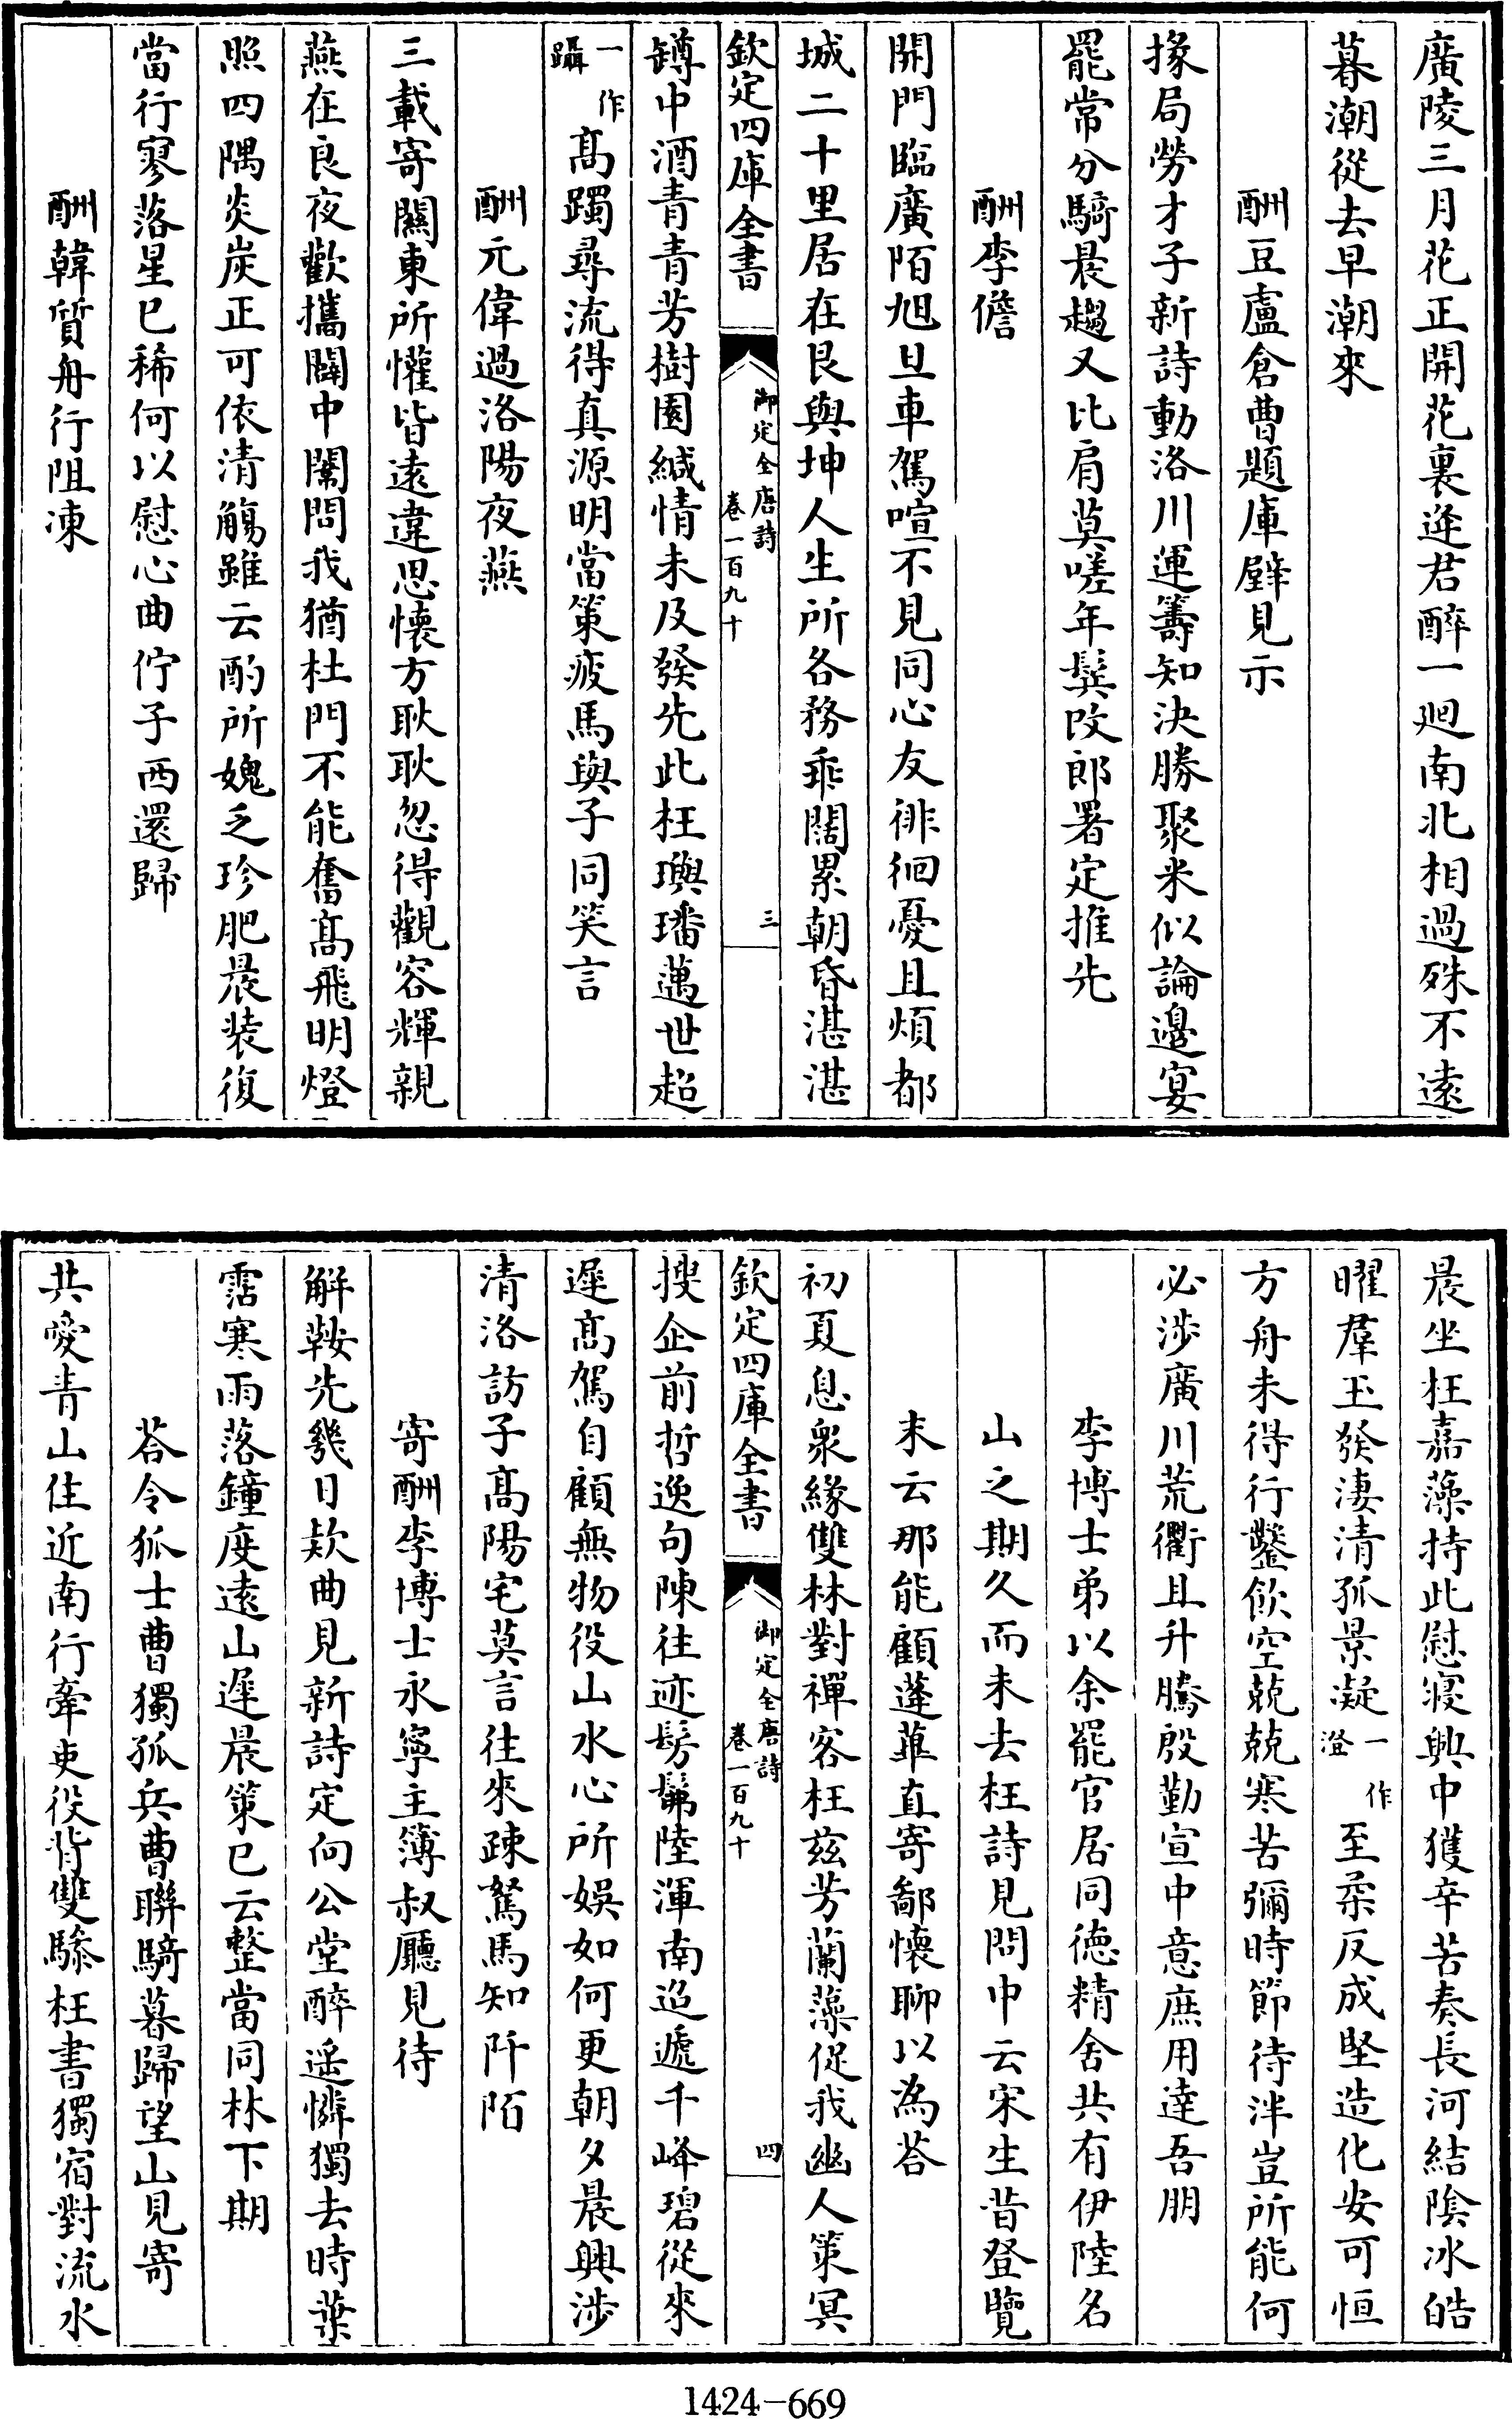 廣陵三月花正開花裏逢君醉一廻南北相過殊不遠
暮潮從去早潮來
酬豆盧倉曹題庫壁見示
掾局勞才子新詩動洛川運籌知決勝聚米似論邊宴
罷常分騎晨趨又比肩莫嗟年鬂改郎署定推先
酬李儋
開門臨廣陌旭旦車駕喧不見同心友徘徊憂且煩都
城二十里居在艮與坤人生所各務乖闊累朝昏湛湛
欽定四庫全書
御定全唐詩
卷一百九十
三
罇中酒青青芳樹園緘情未及發先此枉璵璠邁世超
一作躡
高躅尋流得真源明當策疲馬與子同笑言
酬元偉過洛陽夜燕
三載寄關東所懽皆遠違思懷方耿耿忽得觀容輝親
燕在良夜歡攜闢中闈問我猶杜門不能奮高飛明燈
照四隅炎炭正可依清觴雖云酌所媿乏珍肥晨装復
當行寥落星巳稀何以慰心曲佇子西還歸
酬韓質舟行阻凍
晨坐枉嘉藻持此慰寢興中獲辛苦奏長河結陰冰皓
曜羣玉發淒清孤景凝
一作澄
至柔反成堅造化安可恒
方舟未得行鑿飲空兢兢寒苦彌時節待泮豈所能何
必涉廣川荒衢且升騰殷勤宣中意庶用達吾朋
李博士弟以余罷官居同德精舍共有伊陸名
山之期久而未去枉詩見問中云宋生昔登覽
末云那能顧蓬蓽直寄鄙懷聊以為荅
初夏息衆緣雙林對禪客枉兹芳蘭藻促我幽人策冥
欽定四庫全書
御定全唐詩
卷一百九十
四
搜企前哲逸句陳往迹髣髴陸渾南迢遞千峰碧從來
遲高駕自顧無物役山水心所娛如何更朝夕晨興涉
清洛訪子高陽宅莫言往來疎駑馬知阡陌
寄酬李博士永寧主簿叔廳見待
解鞍先幾日欵曲見新詩定向公堂醉遥憐獨去時葉
霑寒雨落鐘度遠山遲晨策巳云整當同林下期
荅令狐士曹獨孤兵曹聯騎暮歸望山見寄
共愛青山住近南行牽吏役背雙驂枉書獨宿對流水
1424-669